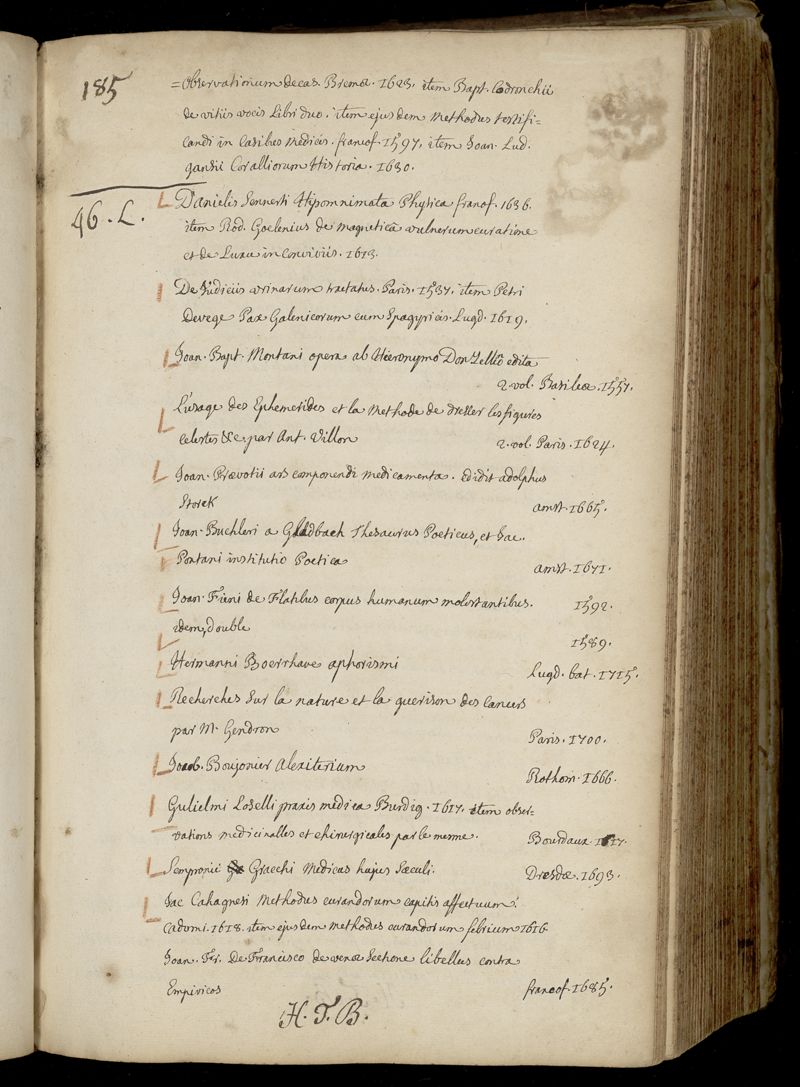 185
=observationum decas. Bremæ. 1623. item Bapt. Codronchii
de vitiis vocis Libri duo. item ejusdem Methodus testifi=
candi in casibus medicis. francof. 1597. item Joan. Lud.
gansii Coralliorum Historia. 1630.
46. L.
Danielis Sennerti Hipomnimata Physica francof. 1636.
item Rod. Goclenius de magnetica vulnerum curatione
et de Luxu in conviviis. 1613.
De Judiciis urinarum tractatus. Paris. 1537. item Petri
Devege Pax Galenicorum cum Spagyricis. Lugd. 1619.
Joan. Bapt. Montani opera ab Hieronymo Donzellio edita
2. vol. Basileæ. 1557.
L'usage des Ephemerides et la methode de dresser les figures
celestes &c par Ant. Villon 2. vol. Paris. 1624.
Joan. Prævotii ars componendi medicamenta. Edidit adolphus
Storck amst. 1665.
Joan. Buchleri a Gladbach Thesaurus Poeticus, et Jac.
Pontani institutio Poetica amst. 1671.
Joan. Fieni de Flatibus corpus humanum molestantibus. 1592.
idem, double 1589.
Hermanni Boerrhave aphorismi Lugd. bat. 1715.
Recherches Sur la nature et la guerison des Cancers
par Mr. Gendron Paris. 1700.
Jacob. Boujonier Alexiterium Rothom. 1666.
Gulielmi Loselli praxis medica Burdig. 1617. item obser=
vations medicinalles et chirurgicales par le mesme. Bourdaux 1617.
Sempronii Gracchi Medicus hujus Sæculi. Dresdæ. 1693.
Jac Cahagnesi Methodus curandorum capitis affectuum.
Cadomi. 1618. item ejusdem methodus curandorum febrium 1616.
Joan. Fr. De Francisco de venæ Sectione libellus contra
Empiricos francof. 1685.
H. T. B.